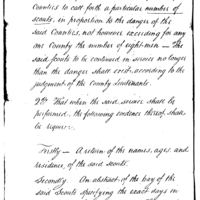 Counties to call forth a particular number of
scouts, in proportion to the danger of the
said Counties, not however exceeding for any
one County the number of eight men — The
said scouts to be continued in service no longer
than the danger shall exist, according to the
judgment of the County Lieutenants.
2dly That when the said service shall be
performed, the following evidence thereof shall
be required.
Firstly — A return of the names, ages and
residence, of the said scouts.
Secondly. An abstract of the pay of the
said Scouts specifying the exact days in